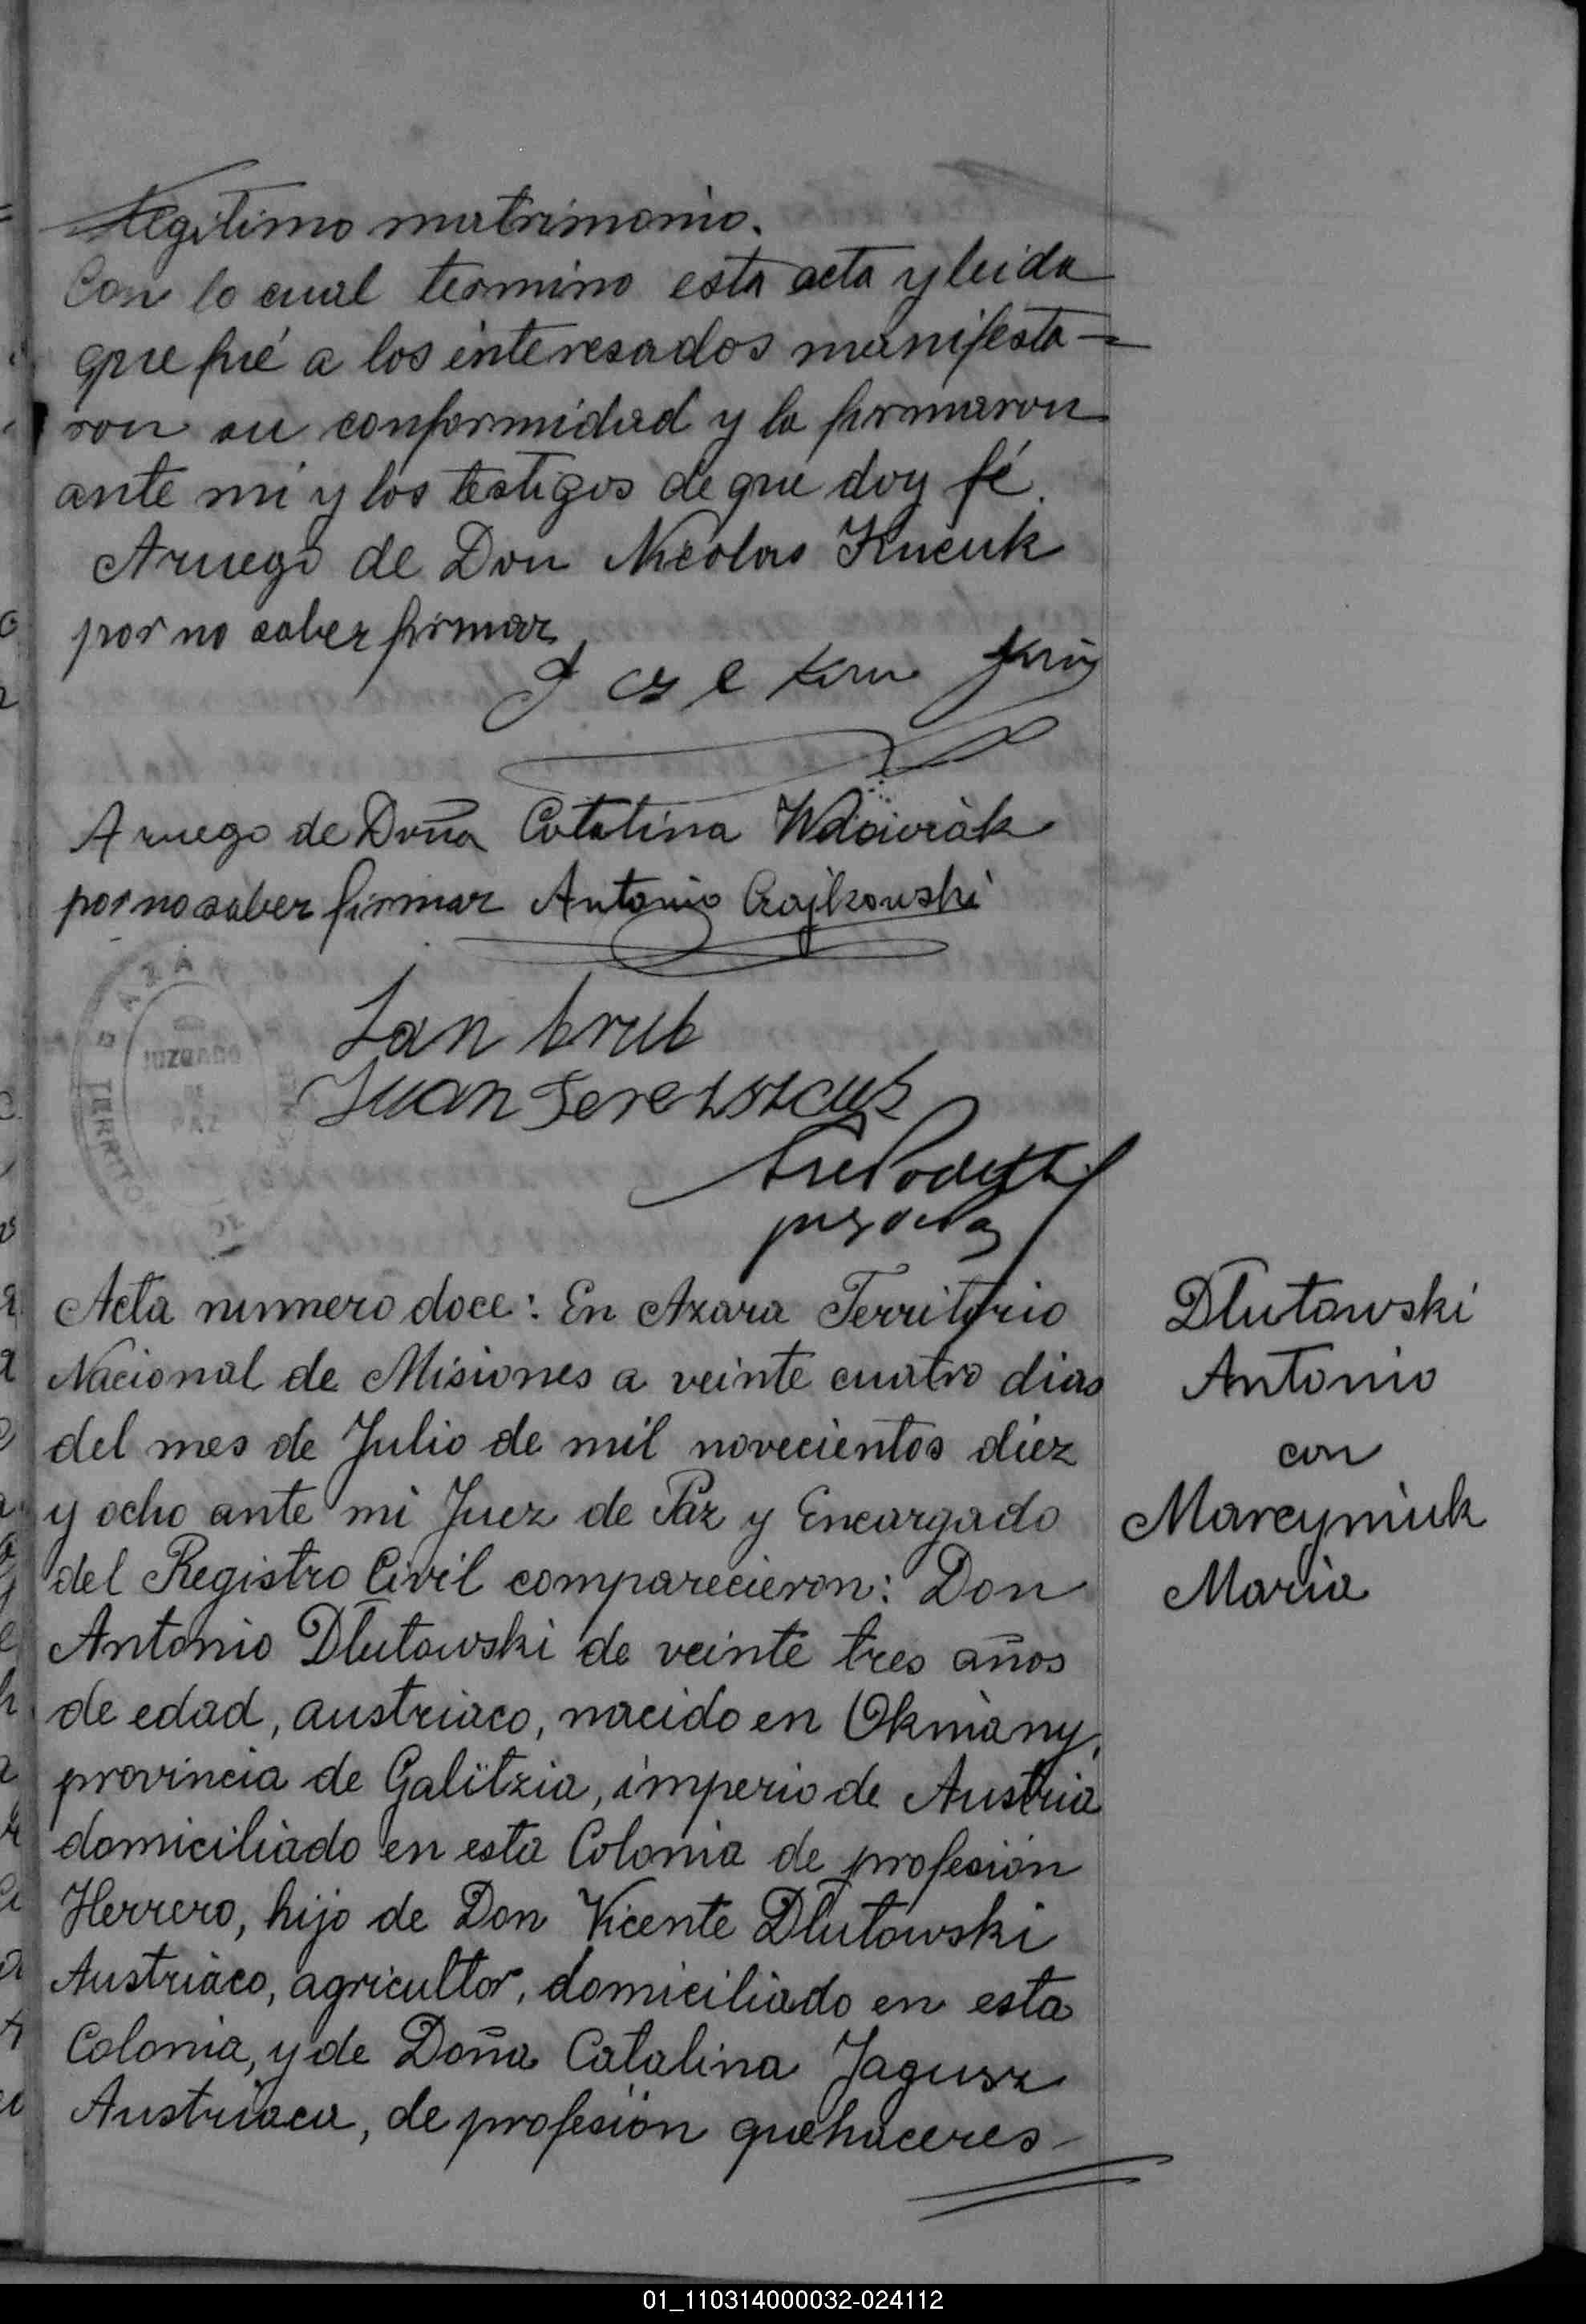 legitimo matrimonio.
Con lo cual termino esta acta y leida
que fué a los interesados manifesta=
ron su conformidad y la firmaron
ante mi y los testigos de que doy fé.
A ruego de Don Nicolas Kucuk
por no saber firmar
A ruego de Doña Catalina Wdowiak
por no saber firmar Antonio Czajkowski
AZARA
JUZGADO
DE
PAZ
TERRITO
Jan
Juan
Acta numero doce: En Azara Territorio
Nacional de Misiones a veinte cuatro dias
del mes de Julio de mil novecientos diez
y ocho ante mi Juez de Paz y Encargado
del Registro Civil comparecieron: Don
Antonio Dlutowski de veinte tres años
de edad, austriaco, nacido en Okmàny,
provincia de Galitzia, imperio de Austria
domiciliado en esta Colonia de profesión
Herrero, hijo de Don Vicente Dlutowski
Austriaco, agricultor, domiciliado en esta
Colonia, y de Doña Catalina Jagusz
Austriaca, de profesión quehaceres
Dlutowski
Antonio
con
Marcyniuk
Maria
01_110314000032-024112